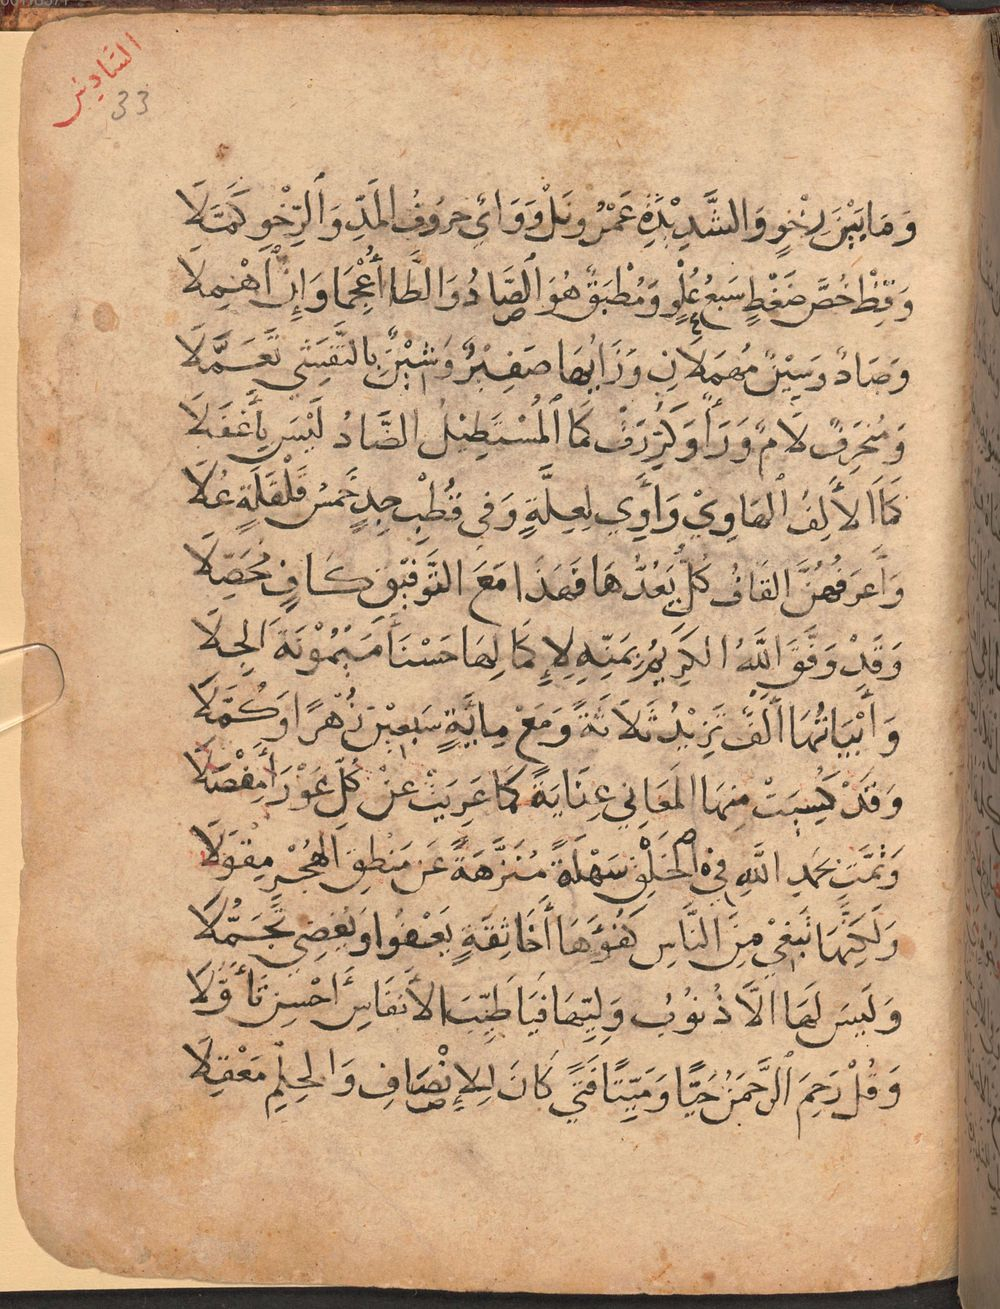 السادس
33
وَمَا بَيْنَ رِخْوٍ وَالشَّدِيْدَةِ عَمْرُونَلْ وَوَاىٌ حُرُوفُ المَدِّ وَالرِّخْوِ كَمَّلَا
وَقِظْ خُصَّ ضَغْطٍ سَبعُ عُلْوٍ وَمُطْبَقٌ هُوَ الصَّادُ وَالطَّا اُعْجِمَا وَإِنْ اُهْمِلَا
وَصَادٌ وَسِيْنٌ مُهمَلَانِ وَزَايُهَا صَفِيْرٌ وَشِيْنٌ بِالتَّفَشِّي تَعَمَّلَا
وَمُنحَرِفٌ لَامٌ وَرَاءٌ وَكُرِّرَتْ كَمَا الْمُسْتَطِيْلُ الضَّادُ لَيْسَ بِأَغْفَلَا
كَمَا الأَلِفُ الهَاوِيْ وَأَوِي لِعِلَّةٍ وَفي قُطْبِ جِدٍ خَمسُ قَلْقَلَةٍ عُلَا
وَأَعرَفُهُنَّ القَافُ كُلٌّ يَعُدُّهَا فَهَذَا مَعَ التَّوفِيْقِ كَافٍ مُحَصِّلَا
وَقَدْ وَفَّقَ اللَّهُ الكَرِيْمُ بِمَنِّهِ لِإِكمَالِهَا حَسْنَاءَ مَيْمُوْنَةَ الجِلَا
وَأَبْيَاتُهَا أَلْفٌ تَزِيْدُ ثَلَاثَةً وَمَعْ مِائَةٍ سَبعِيْنَ زُهْرًا وَكُمَّلَا
وَقَدْ كُسِيَتْ مِنهَا المَعَانِي عِنَايَةً كَمَا عَرِيَتْ عَنْ كُلِّ عَوْرَاءَ مِفْصَلَا
وَتَمَّتْ بحَمدِ اللَّهِ فِي الخَلْقِ سَهْلَةً مُنَزَّهَةً عَن مَنطِقِ الهُجْرِ مِقْوَلَا
وَلَكِنَّهَا تَبغِي مِنَ النَّاسِ كُفُؤَهَا أَخَا ثِقَةٍ يَعفُوا وَيُغضِي تَجَمُّلَا
وَلَيسَ لَهَا الَّا ذُنُوبُ وَلِيِّهَا فَيَا طَيِّبَ الأَنفَاسِ أَحْسِنْ تَأَوُّلَا
وَقُلْ رَحِمَ الرَّحمَنُ حَيًّا وَمَيِّتًا فَتًى كَانَ لِلإِنْصَافِ وَالحِلمِ مَعْقِلَا